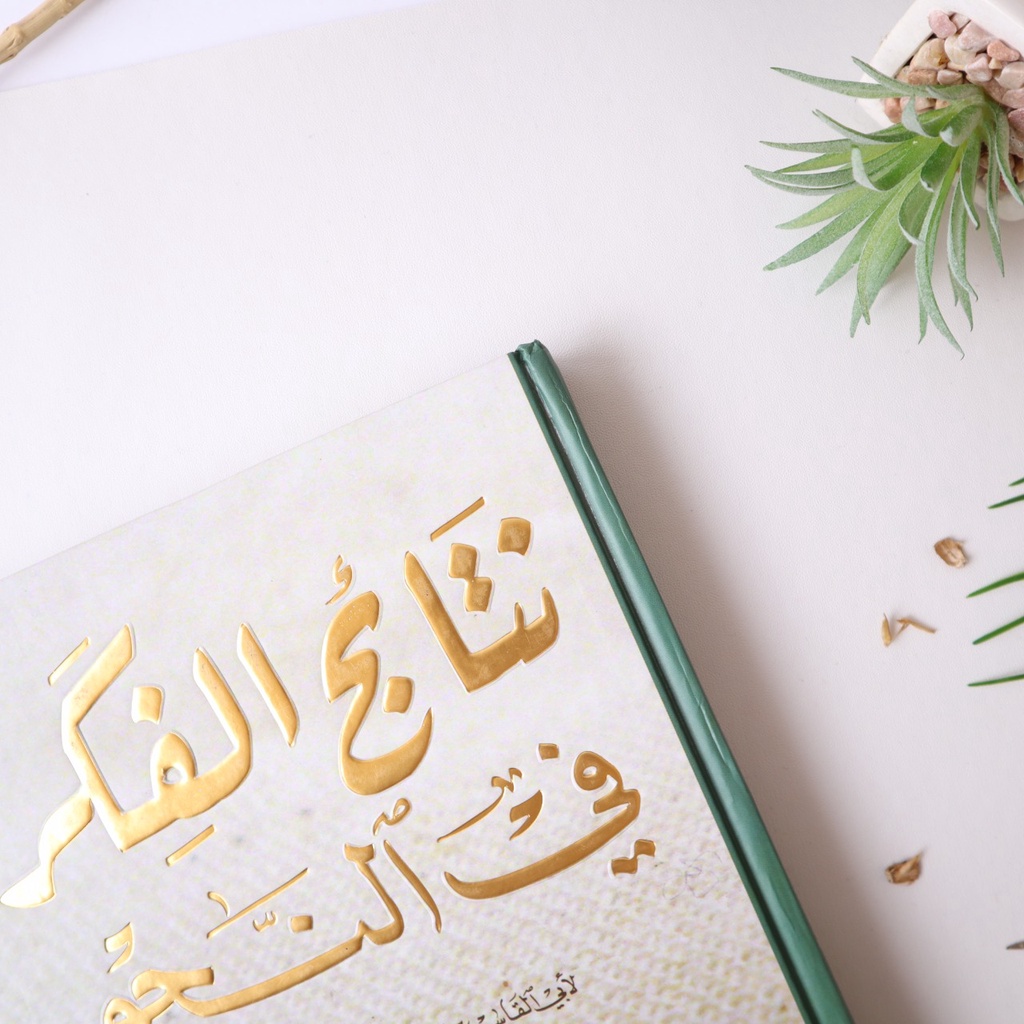 نَتَائِجُ الفِكَر
فِي النَّحْو
لأبي القاسم